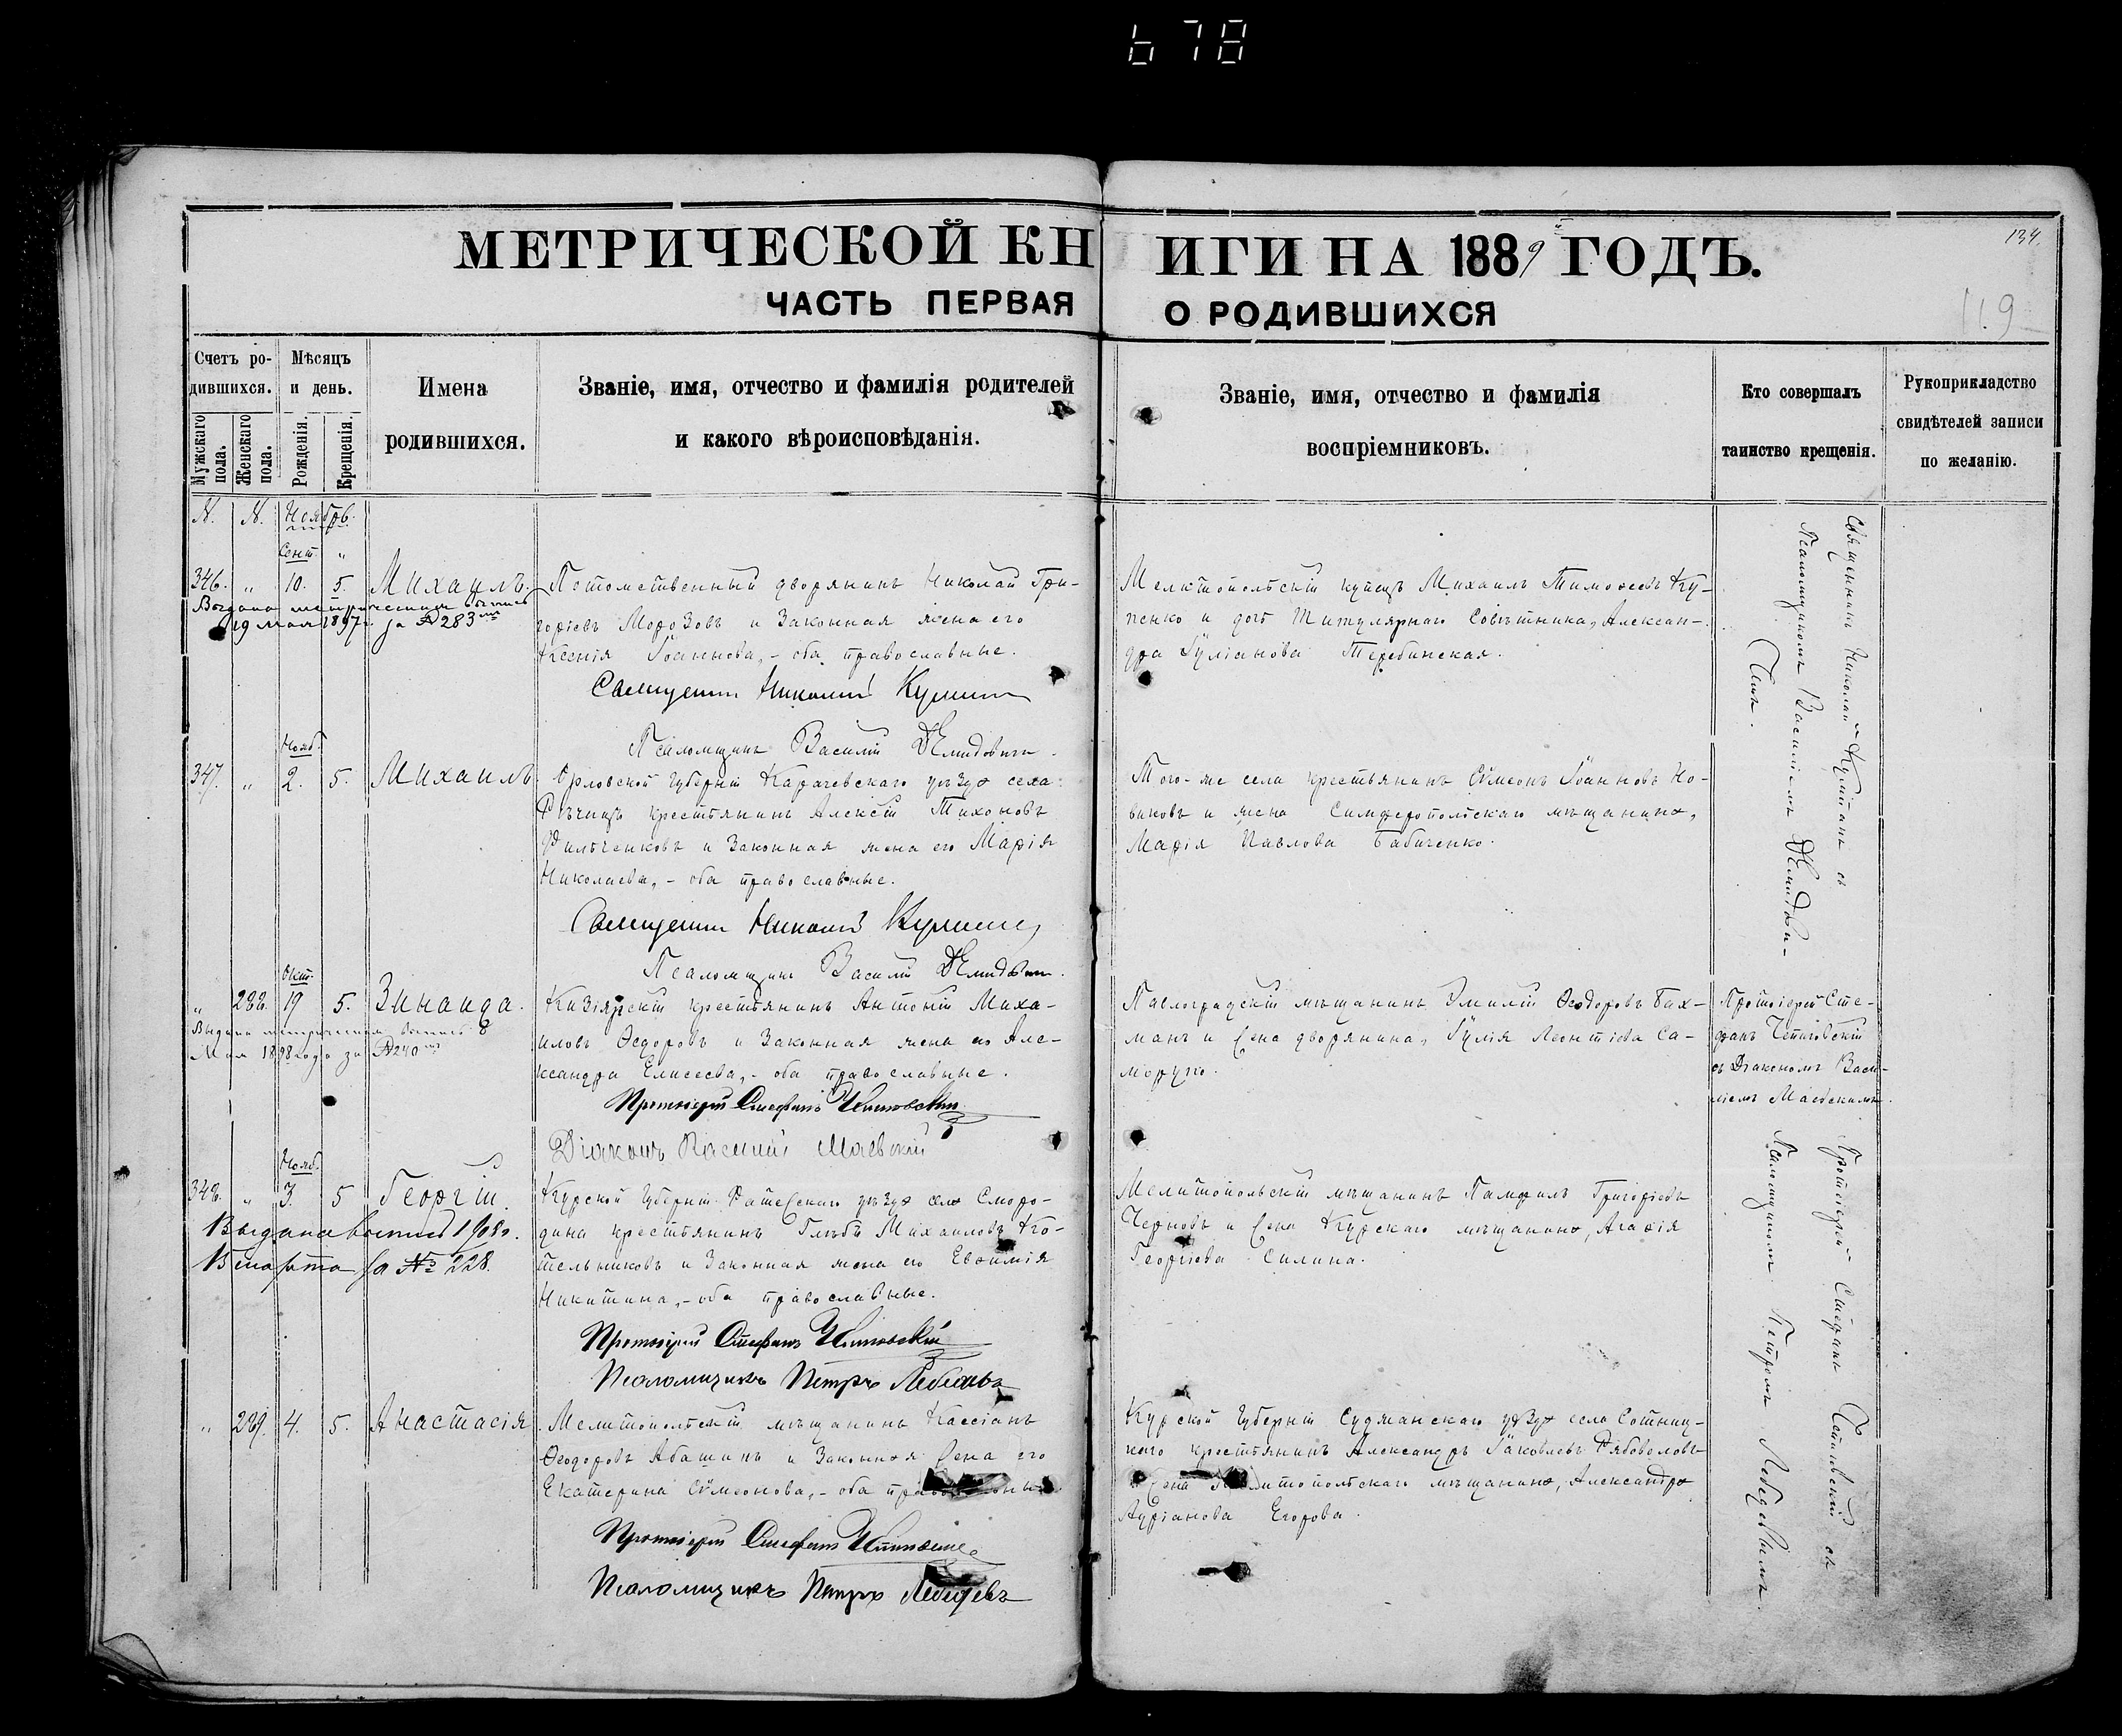 678
МЕТРИЧЕСКОЙ КНИГИ НА 1889 ГОДЪ.
134
ЧАСТЬ ПЕРВАЯ О РОДИВШИХСЯ
119
Счетъ родившихся.
Мужскаго пола.
Женскаго пола.
Мѣсяцъ и день.
Рожденія.
Крещенія.
Имена
родившихся.
Званіе, имя, отчество и фамилія родителей
и какого вѣроисповѣданія.
Званіе, имя, отчество и фамилія
воспріемниковъ.
Кто совершалъ
таинство крещенія.
Рукоприкладство
свидѣтелей записи
по желанію.
N. N. Ноябрь.
Сент. "
346. " 10. 5. Михаилъ.
Выдана метрическая выпись
19 мая 1897 г. за № 283
Потомственный дворянинъ Николай Гри-
горіевъ Морозовъ и законная жена его
Ксенія Іоаннова, - оба православные.
Священник Николай
Псаломщикъ Василій Демидович.
Мелитопольскій купецъ Михаилъ Тимоѳеевъ Ку-
пенко и дочь Титулярнаго Совѣтника, Алексан-
дра Іуліанова Теребинская.
Священникъ Николай
Псаломщикомъ Василіемъ Демидови-
Нояб.
347. " 2. 5. Михаилъ
Орловской губерніи Карачевскаго уѣзда села
Рѣчицъ крестьянинъ Алексій Тихоновъ
Фильченковъ и законная жена его Марія
Николаева, - оба православные.
Священник Николай
Псаломщикъ Василій Демидович.
Того-же села крестьянинъ Сѵмеонъ Іоанновъ Но-
виковъ и жена Симферопольскаго мѣщанина,
Марія Павлова Бабиченко.
Окт.
" 288. 19 5. Зинаида.
Выдана метрическая выпись 8
Мая 1898 года за № 240
Кизіярскій крестьянинъ Антоній Миха-
иловъ Ѳедоровъ и законная жена его Але-
ксандра Елисеева, - оба православные.
Протоіерей Стефанъ
Діаконъ Василій Маевскій
Павлоградскій мѣщанинъ Эмилій Ѳеодоровъ Бах-
манъ и жена дворянина, Іулія Леонтіева Са-
Протоіерей Сте-
фанъ
съ Діакономъ Васи-
ліемъ Маевскимъ.
Нояб.
348. " 3. 5 Георгій.
Выдана выпись 1908 г.
марта за № 228.
Курской губерніи Фатежскаго уѣзда села Сморо-
дина крестьянинъ Глѣбъ Михаиловъ Ко-
тельниковъ и законная жена его Евѳимія
Никитина, - оба православные.
Протоіерей Стефанъ
Псаломщикъ Петръ Лебедевъ
Мелитопольскій мѣщанинъ Памфилъ Григоріевъ
Черновъ и жена Курскаго мѣщанина, Агафія
Георгіева Силина.
Протоіерей Стефанъ
Псаломщикомъ Петромъ Лебедевымъ.
" 289. 4. 5. Анастасія
Мелитопольскій мѣщанинъ Кассіанъ
Ѳеодоровъ Абашинъ и законная жена его
Екатерина Сѵмеонова, - оба
Протоіерей Стефанъ
Псаломщикъ Петръ Лебедевъ
Курской губерніи Суджанскаго уѣзда села Сотниц-
каго крестьянинъ Александръ Іаковлевъ Рябоволовъ
и жена Мелитопольскаго мѣщанина, Александра
Адріанова Егорова.